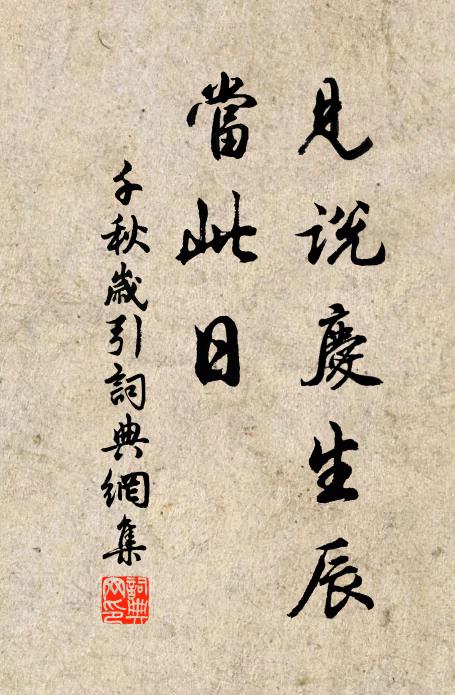 見説慶生辰
當此日
千秋歲引詞典網集
詞典网印